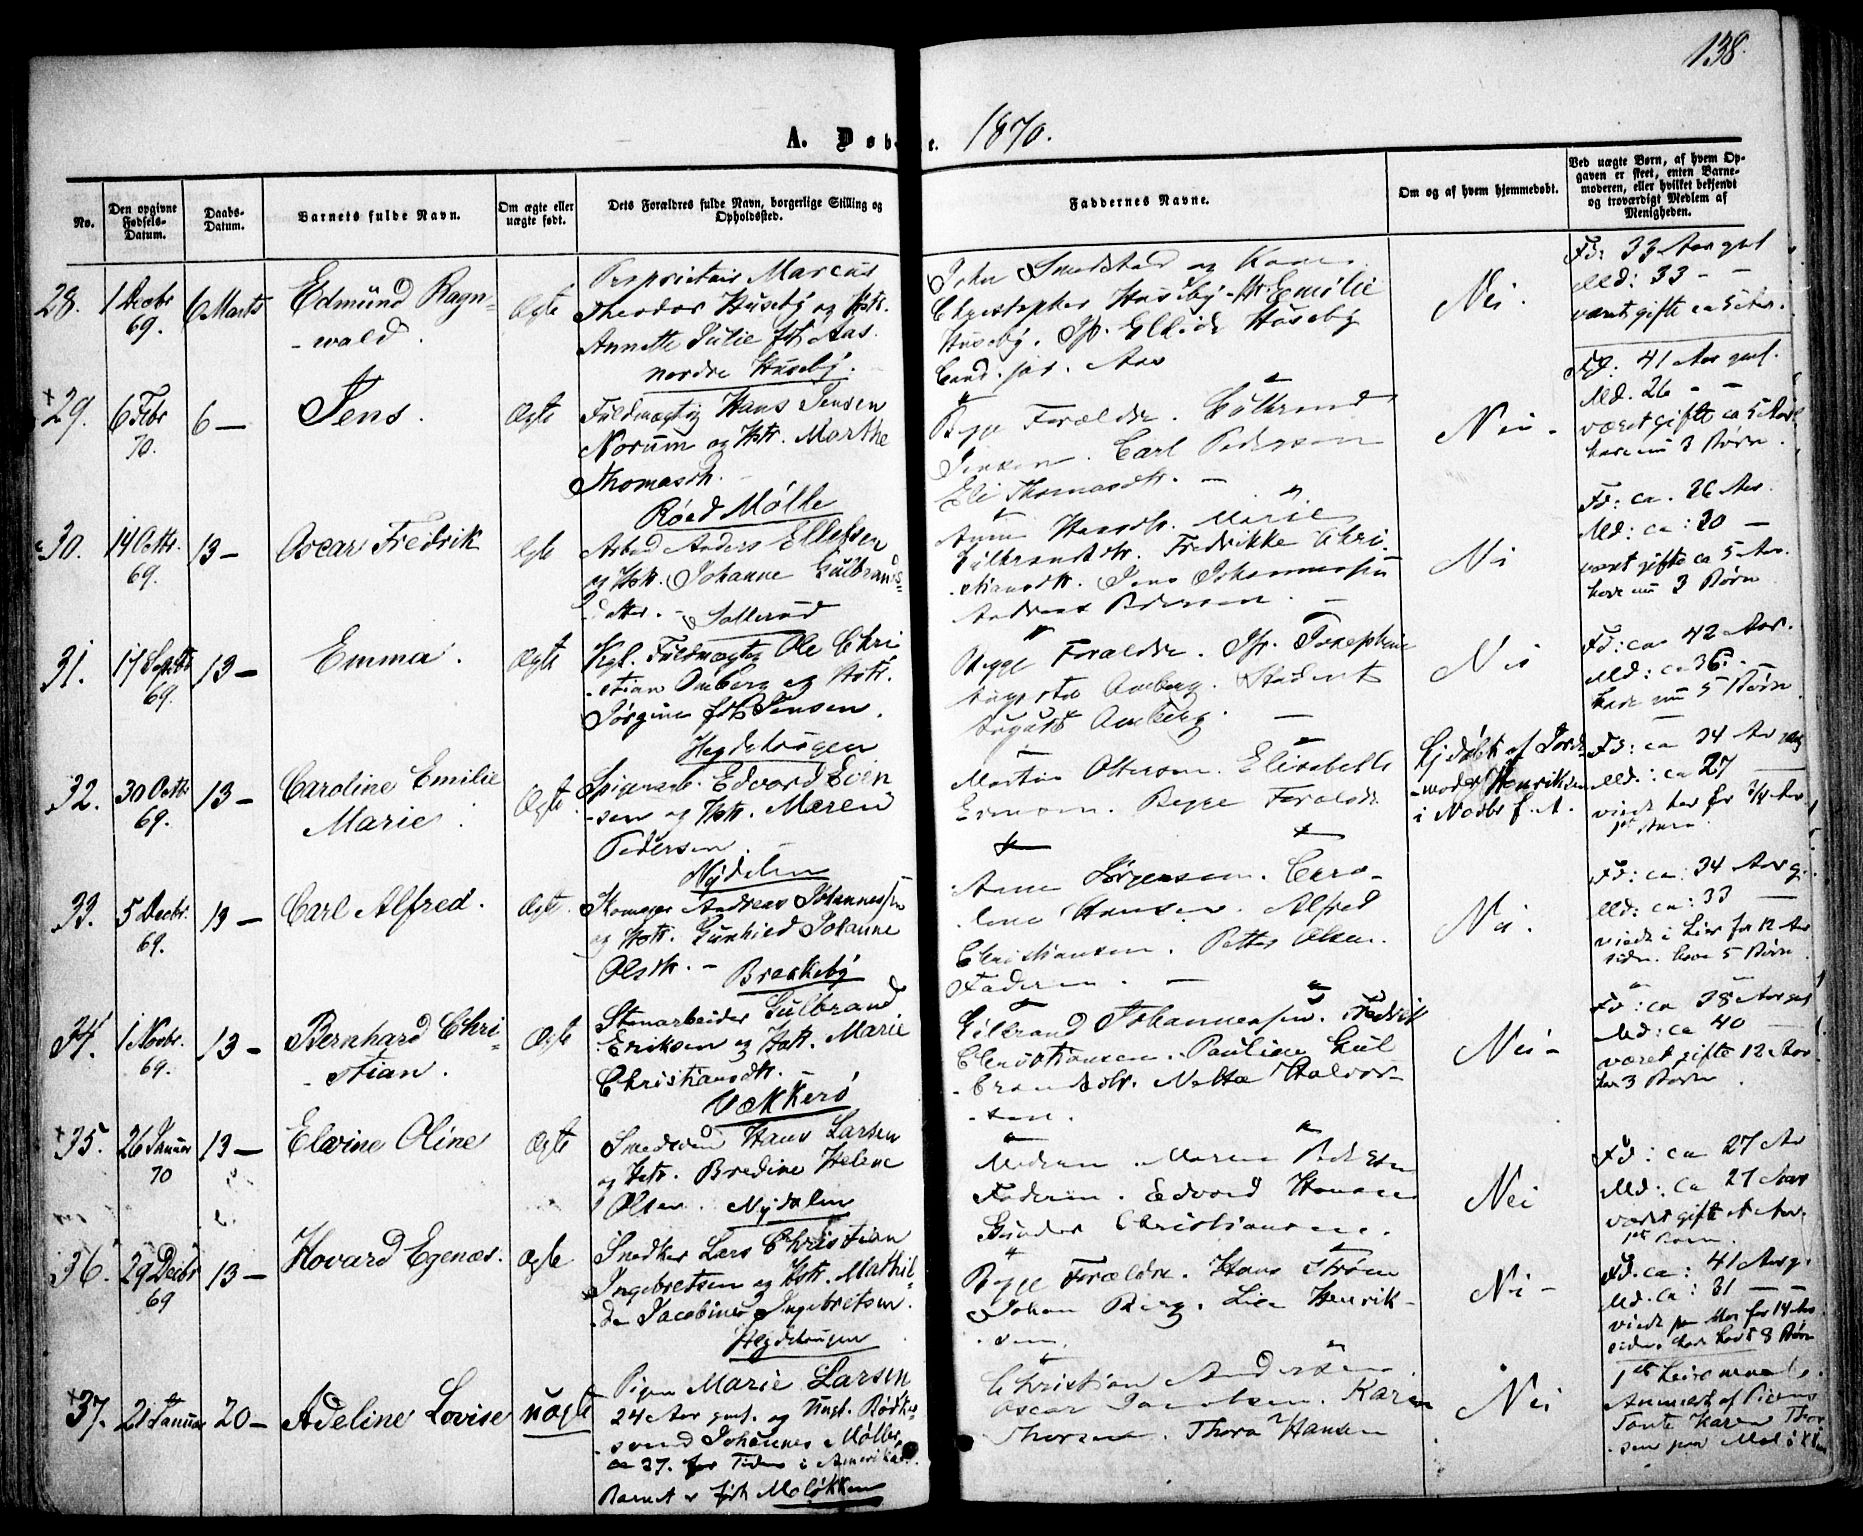 138.
A. Døb e. 1870.
No.
Den opgivne Fødsels-Datum.
Daabs-Datum.
Barnets fulde Navn.
Om ægte eller uægte født.
Dets Forældres fulde Navn, borgerlige Stilling og Opholdssted.
Faddernes Navne.
Om og af hvem hjemmedøbt.
Ved uægte Børn, af hvem Opgaven er skeet, enten Barnemoderen, eller hvilket bekjendt og troværdigt Medlem af Menigheden.
28. 1 Decbr 69. 6 Marts
Edmund Ragn-
-wald.
Ægte
Proprietair Marcus
Theodor Huseby og Hstr.
Annette Julie fdt Aas.
nordre Huseby.
Christopher Huseby. Emilie
Huseby. Huseby
Cand. jur. Aas
Nei.
Fd: 33 Aar gml
Md: 33 - -
været gifte ca 5 Aar.
29. 6 Febr 70. 6 —
Jens.
Ægte
Fuldmægtig Hans Jensen
Norum og Hstr. Marthe
Thomasdtr.
Røed Mølle
Begge Forældre. Gulbrand
Jensen. Carl Pedersen
Eli Thomasdtr. —
Nei -
Fd: 41 Aar gml.
Md. 26 - -
været gifte ca 5 Aar
have nu 3 Børn.
30. 14 Octbr. 69. 13 —
Oscar Fredrik
Ægte
Arbmd Anders Ellefsen
og Hstr. Johanne Gulbrands-
datter. -
Hansdtr. Marie
Gulbrandsdtr. Fredrikke Chri-
-stiansdtr. Jens Johannessen
Andreas Pedersen. —
Nei
Fd: ca. 26 Aar.
Md: ca: 30 —
været gifte ca 5 Aar.
have nu 3 Børn
31. 17 Septbr 69. 13 —
Emma.
Ægte
Kgl. Fuldmægtig Ole Chri
-stian Omberg og Hstr.
Jørgine fdt Jensen.
Hegdehaugen
Begge Forældre. Josephine
Augusta Omberg. Student
August Omberg. —
Nei
Fd: ca 42 Aar.
Md: ca 36. -
have nu 5 Børn
32. 30 Octbr. 69. 13 —
Caroline Emilie
Marie.
Ægte.
Edvard Even
-sen og Hstr. Maren
Pedersen.
Nydalen
Martin Olsen. Elisabeth
Begge Forældre
Hjdøbt af Jorde
-moder Henriksen
i Novbr f. A.
Fd: ca 34 Aar
Md: ca 27 —
1ste Barn.
33. 5 Decbr. 69. 13 —
Carl Alfred.
Ægte.
Skomager Andreas Johannessen
og Hstr. Gunhild Johanne
Olsdtr. -
Brækkeby
Anne Jørgensen. Caro-
-line Hansen. Alfred
Christiansen. Petter Olsen.
Faderen. —
Nei.
Fd: ca: 34 Aar g.
Md: ca: 33 —
viede i Lier for 12 Aar
siden. have 5 Børn.
34. 1 Novbr. 69. 13 —
Bernhard Chri-
-stian.
Ægte
Stenarbeider Gulbrand
Eriksen og Hstr. Marie
Christiansdtr.
Vækkerø
Gulbrand Johannessen. Fredrik
Christiansen. Pauline Gul
-brandsdtr. Netta Halvor-
-sen.
Nei -
Fd: ca 38 Aar gml
Md: ca 40 —
været gifte 12 Aar.
har 3 Børn.
35. 26 Januar 70 13 —
Elvine Oline
Ægte
Smedsvend Hans Larsen
og Hstr. Bredine Helene
Olsen. Nydalen
Moderen. Maren Pedersen
Faderen. Edvard Hansen
Gunder Christiansen.
Nei
Fd: ca 27 Aar
Md: ca 27 Aar
været gifte 1 Aar.
1ste Barn.
36. 29 Decbr 69 13 —
Hovard Egenæs.
Ægte
Snedker Lars Christian
Ingebretsen og Hstr. Mathil-
-de Jacobine Ingebretsen.
Hegdehaugen
Begge Forældre. Hans Strøm
Johan Berg. Lise Henrik-
-sen.
Nei -
Fd. ca: 41 Aar g.
Md. ca: 31 —
viede paa Mos for 14 Aar
siden. har havt 8 Børn
37. 21 Januar 20 —
Adeline Lovise
uægte
Pigen Marie Larsen
24 Aar gml. og Ungk. Bødker-
-svend Johannes Møller,
ca 27. for Tiden i Amerika.
Barnet er født Møløkken
Christian Andersen
Oscar Jacobsen. Karen
Thorsen. Thora Hansen
Nei
1ste Leiermaal.
Anmeldt af Pigens
Tante Karen Thor
-sen paa Møløkken